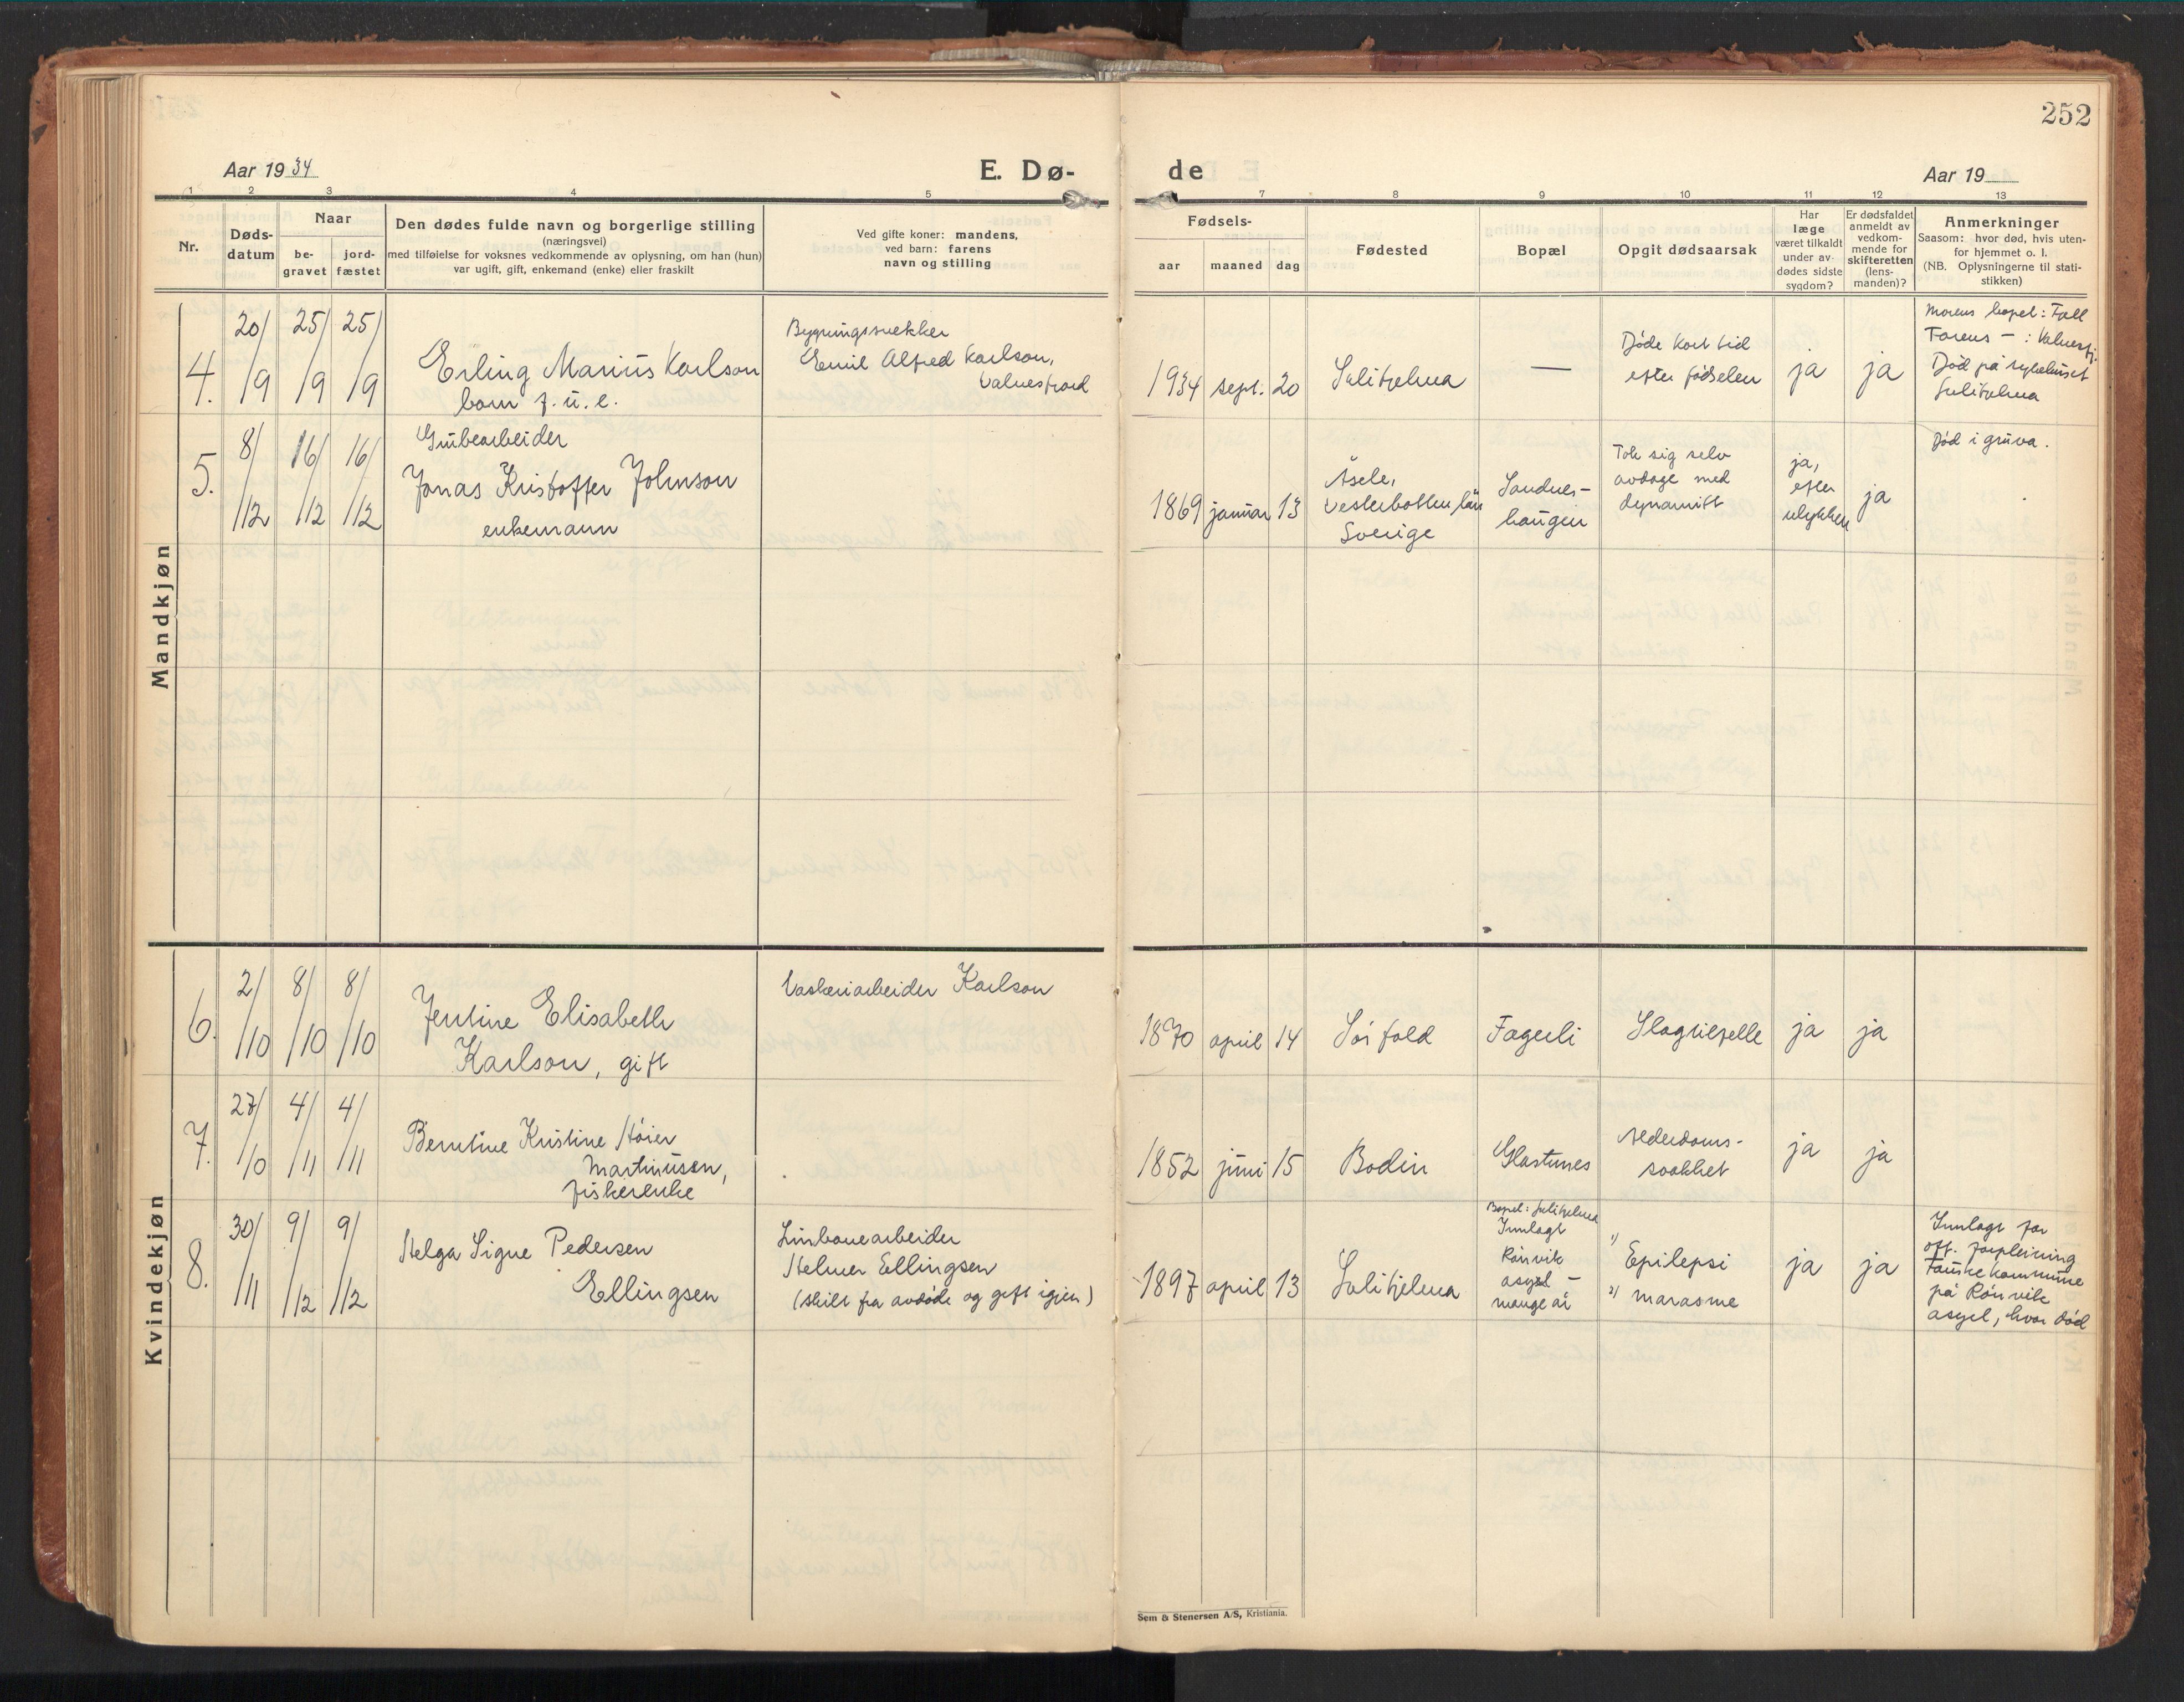 252
Aar 1934
E. Dø-
de
Aar 19
1 2 3 4 5 7 8 9 10 11 12 13
Nr.
Døds-
datum
Naar
be-
gravet
jord-
fæstet
Den dødes fulde navn og borgerlige stilling
(næringsvei)
med tilføielse for voksnes vedkommende av oplysning, om han (hun)
var ugift, gift, enkemand (enke) eller fraskilt
Ved gifte koner: mandens,
ved barn: farens
navn og stilling
Fødsels-
aar maaned dag
Fødested
Bopæl
Opgit dødsaarsak
Har
læge
været tilkaldt
under av-
dødes sidste
sygdom?
Er dødsfaldet
anmeldt av
vedkom-
mende for
skifteretten
(lens-
manden)?
Anmerkninger
Saasom: hvor død, hvis uten-
for hjemmet o. l.
(NB. Oplysningerne til stati-
stikken)
Mandkjøn
4.
20/9 25/9 25/9
Erling Marius Karlson
barn f. u. e.
Emil Alfred Karlson,
Valnesfjord
1934 sept. 20
Sulitjelma
—
Døde kort tid
efter fødselen
ja
ja
Morens bopel:
Farens — : Valnesfj.
Død på sykehuset
Sulitjelma
5.
8/12 16/12 16/12
Grubearbeider
Jonas Kristoffer Johnson
enkemann
1869 januar 13
Åsele,
Vesterbotten län
Sverige
Sandnes-
haugen
Tok sig selv
avdage med
dynamitt
ja,
efter
ulykken
ja
Død i gruva.
Kvindekjøn
6.
2/10 8/10 8/10
Jentine Elisabeth
Karlson, gift
Vaskeriarbeider Karlson
1870 april 14
Sørfold
Fagerli
Slagtilfelle
ja
ja
7.
27/10 4/11 4/11
Berntine Kristine Høier
Martinusen,
fiskerenke
1852 juni 15
Bodin
Glastunes
Alderdoms-
svakhet
ja
ja
8.
30/11 9/12 9/12
Helga Signe Pedersen
Ellingsen
Linbanearbeider
Helmer Ellingsen
(skilt fra avdøde og gift igjen)
1897 april 13
Sulitjelma
Bopel: Sulitjelma
Innlagt
Rønvik
asyl —
mange år
1) Epilepsi
2) marasme
ja
ja
Innlagt for
off. forpleining
Fauske kommune
på Rønvik
asyl, hvor død
Sem & Stenersen A/S, Kristiania.